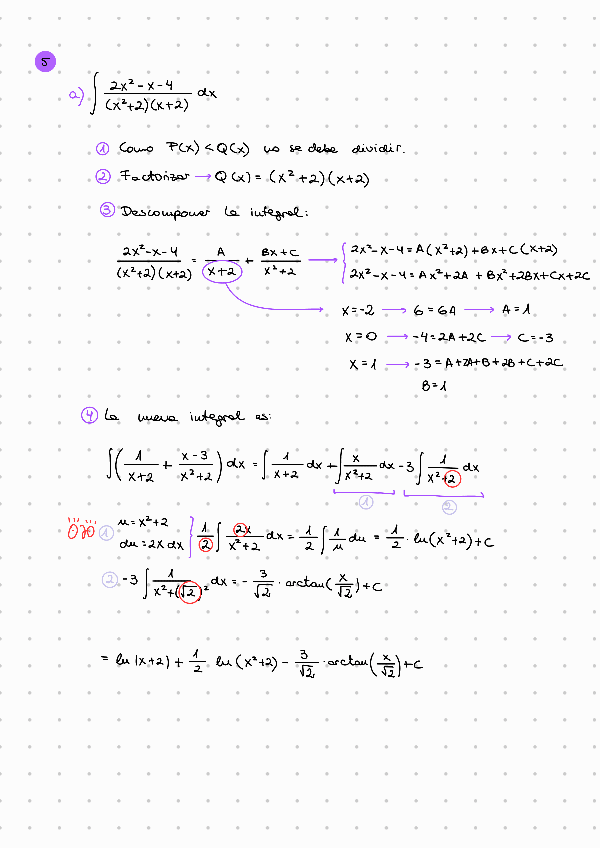 5
a) ∫ (2x²-x-4)/((x²+2)(x+2)) dx
① Como P(x) < Q(x) no se debe dividir.
② Factorizar → Q(x) = (x²+2)(x+2)
③ Descomponer la integral:
(2x²-x-4)/((x²+2)(x+2)) = A/(x+2) + (Bx+C)/(x²+2) → { 2x²-x-4 = A(x²+2) + Bx+C(x+2)
2x²-x-4 = Ax²+2A + Bx²+2Bx+Cx+2C
x=-2 → 6=6A → A=1
x=0 → -4=2A+2C → C=-3
x=1 → -3=A+2A+B+2B+C+2C
B=1
④ La nueva integral es:
∫(1/(x+2) + (x-3)/(x²+2)) dx = ∫ 1/(x+2) dx + ∫ x/(x²+2) dx - 3 ∫ 1/(x²+2) dx
① ②
OJO ① u=x²+2
du=2x dx } 1/2 ∫ 2x/(x²+2) dx = 1/2 ∫ 1/u du = 1/2 · ln(x²+2)+C
② -3 ∫ 1/(x²+(√2)²) dx = - 3/√2 · arctan(x/√2)+C
= ln|x+2) + 1/2 ln(x²+2) - 3/√2 · arctan(x/√2)+C